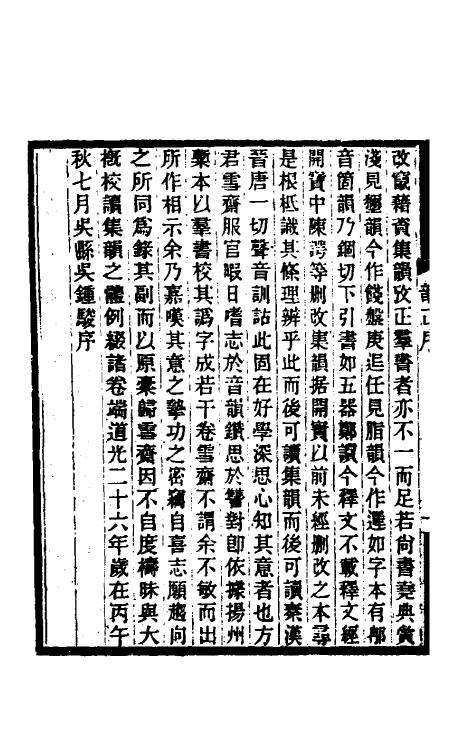 改竄藉資集韻攷正羣書者亦不一而足若尚書堯典黄
淺見韻今作餞盤庚遲任見脂韻今作遲如字本有郍
音箇韻乃錮切下引書如五器鄭讀今釋文不載釋文經
開寶中陳諤等刪改集韻据開寶以前未經刪改之本尋
是根柢識其條理辨乎此而後可讀集韻而後可讀秦漢
晉唐一切聲音訓詁此固在好學深思心知其意者也方
君雪齋服官暇日嗜志於音韻鑽思於讐對卽依據揚州
槀本以羣書校其譌字成若干卷雪齋不謂余不敏而出
所作相示余乃嘉嘆其意之摯功之密竊自喜志願趨向
之所同爲錄其副而以原槀歸雪齋因不自度檮昧與大
槪校讀集韻之體例綴諸卷端道光二十六年歲在丙午
秋七月吳縣吳鍾駿序